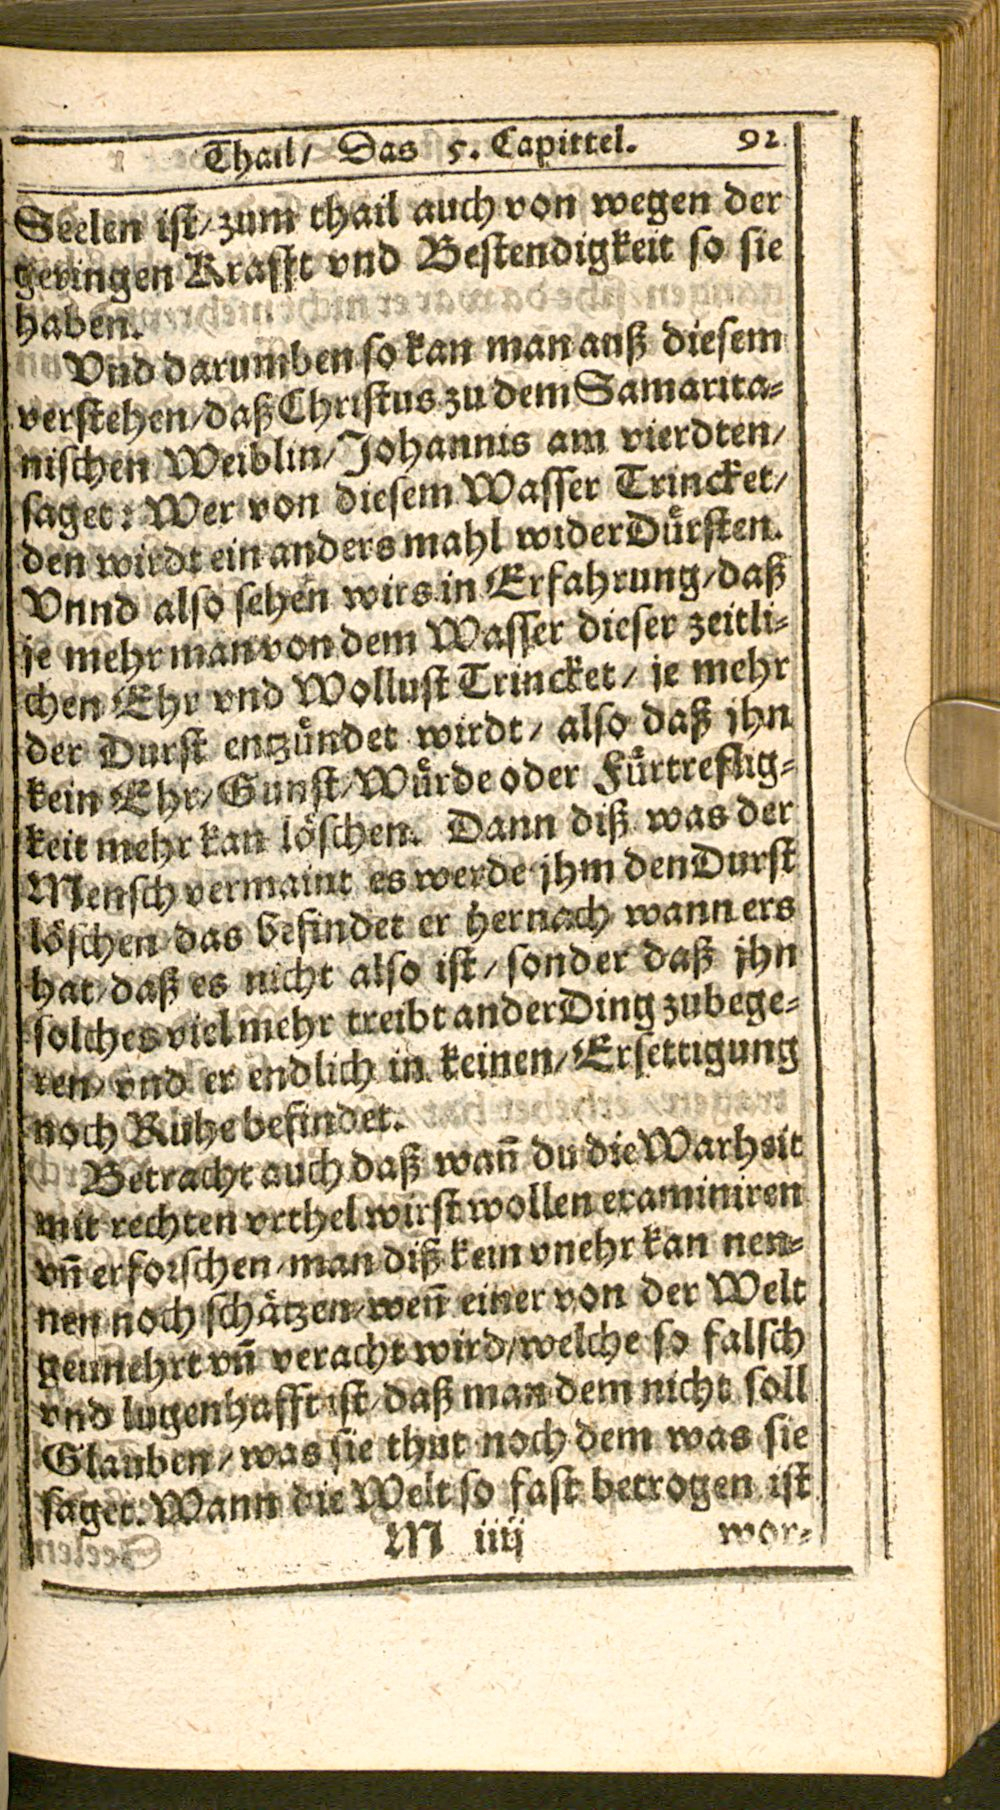 Thail/ Das 5. Capittel. 92
Seelen ist/ zum thail auch von wegen der
geringen Krafft vnd Bestendigkeit so sie
haben.
Vnd darumben so kan man auß diesem
verstehen/ daß Christus zu dem Samarita-
nischen Weiblin/ Johannis am vierdten/
saget: Wer von diesem Wasser Trincket/
den wirdt ein anders mahl wider Dürsten.
Vnnd also sehen wirs in Erfahrung/ daß
je mehr man von dem Wasser dieser zeitli-
chen Ehr vnd Wollust Trincket/ je mehr
der Durst entzündet wirdt/ also daß jhn
kein Ehr/ Gunst/ Würde oder Fürtreflig-
keit mehr kan löschen. Dann diß was der
Mensch vermaint es werde jhm den Durst
löschen/ das befindet er hernach wann ers
hat/ daß es nicht also ist/ sonder daß jhn
solches viel mehr treibt ander Ding zubege-
ren/ vnd er endlich in keinen/ Ersettigung
noch Ruhe befindet.
Betracht auch daß wañ du die Warheit
mit rechten vrthel wirst wollen examiniren
vñ erforschen/ man diß kein vnehr kan nen-
nen noch schätzen/ weñ einer von der Welt
geunehrt vñ veracht wird/ welche so falsch
vnd lugenhafft ist/ daß man dem nicht soll
Glauben/ was sie thut noch dem was sie
saget. Wann die Welt so fast betrogen ist
M iiij wor-